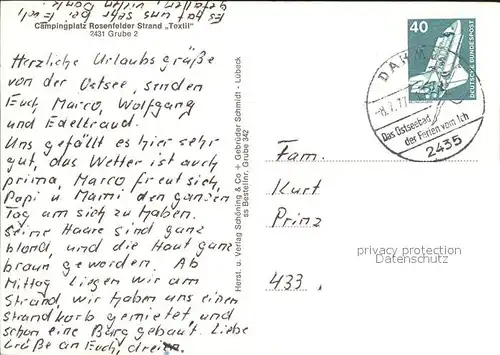 Es hat uns sehr bei Euch
gefallen, vielen Dank.
Campingplatz Rosenfelder Strand „Textil"
2431 Grube 2
Herzliche Urlaubsgrüße
von der Ostsee, senden
Euch, Marco, Wolfgang
und Edeltraud.
Uns gefällt es hier sehr
gut, das Wetter ist auch
prima, Marco freut sich,
Papi u Mami den ganzen
Tag um sich zu haben.
Seine Haare sind ganz
blond, und die Haut ganz
braun geworden. Ab
Mittag liegen wir am
Strand, wir haben uns einen
Strandkorb gemietet und
schon eine Burg gebaut. Liebe
Grüße an Euch, dreien.
Herst. u. Verlag Schöning & Co + Gebrüder Schmidt - Lübeck
ss Bestellnr. Grube 342
40
DEUTSCHE BUNDESPOST
DAHME
8.7.77
Das Ostseebad
der Ferien vom Ich
2435
Fam.
Kurt
Prinz
433.
privacy protection
Datenschutz